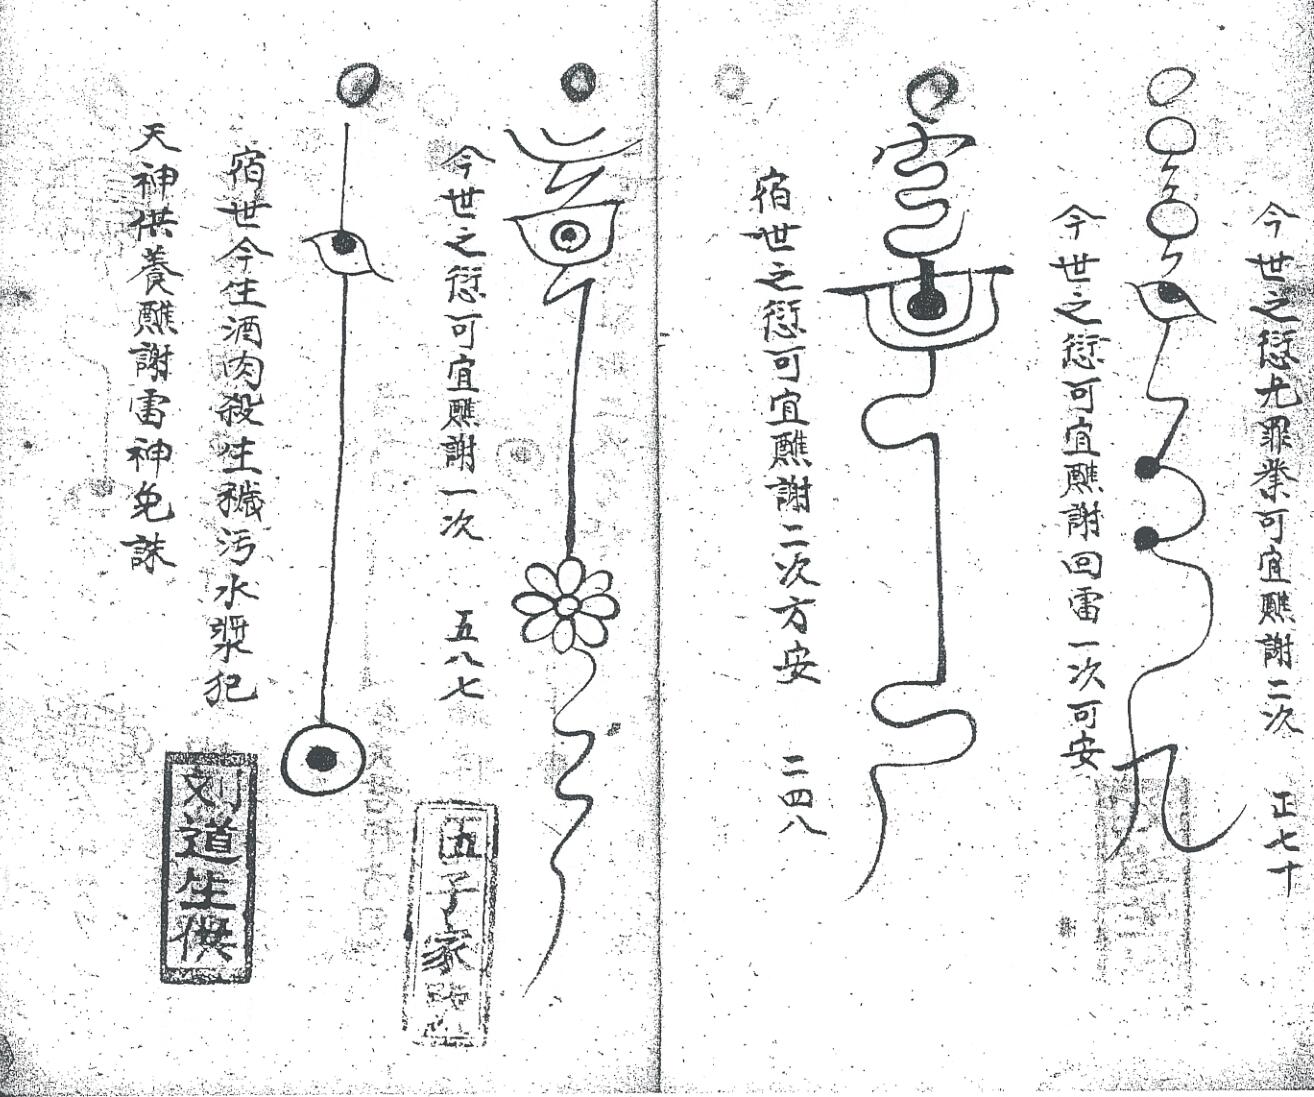 今世之愆尤罪業可宜醮謝二次 正七十
今世之愆可宜醮謝回雷一次可安
宿世之愆可宜醮謝二次方安 二四八
今世之愆可宜醮謝一次 五八七
宿世今生酒肉殺生穢污水漿犯
天神供養醮謝雷神免誅
五子家
刘道生供